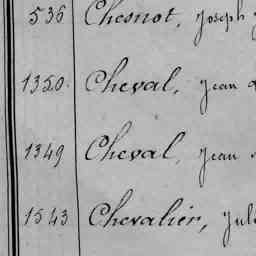 536 Chesnot, Joseph
1350. Cheval, Jean
1349 Cheval, Jean
1543 Chevalier,